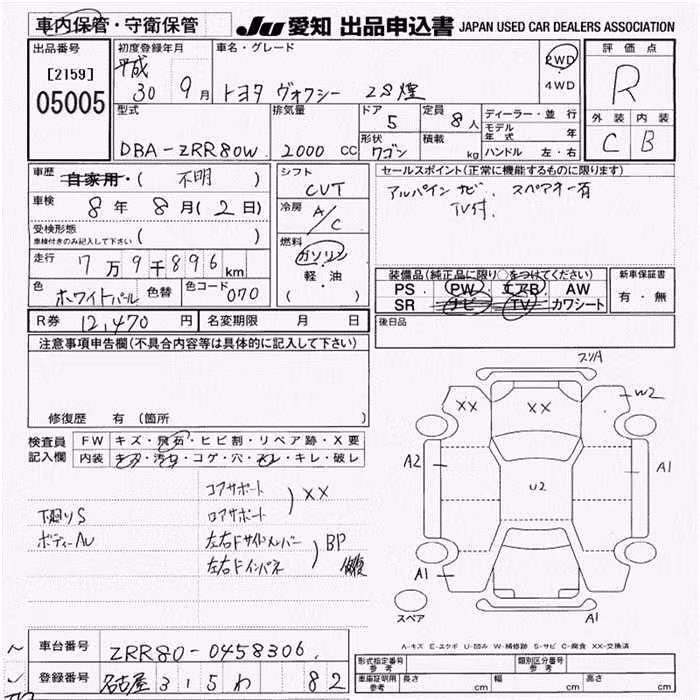 車内保管・守衛保管 JU 愛知 出品申込書 JAPAN USED CAR DEALERS ASSOCIATION
出品番号 初度登録年月 車名・グレード 2WD 評価点
[2159] 平成 4WD R
05005 30 9月 トヨタ ヴォクシー ZS煌
型式 排気量 ドア 定員 ディーラー・並行 外装 内装
5 8人 モデル年式 年
DBA-ZRR80W 2000 CC 形状 積載 C B
ワゴン kg ハンドル 左・右
車歴 自家用・( 不明 ) シフト セールスポイント(正常に機能するものに限ります)
CVT アルパインナビ、スペアキー有
車検 8年 8月(2日) 冷房 TV付、
A/C
受検形態 ( )
車検付きのみ記入して下さい 燃料
走行 7万9千896km ガソリン 装備品(純正品に限り○をつけてください) 新車保証書
軽・油 PS PW エアB AW 有・無
色 ホワイトパール 色替 色コード 070 ( ) SR ナビ TV カワシート
R券 12,470 円 名変期限 月 日 後日品
注意事項申告欄(不具合内容等は具体的に記入して下さい)
スリA
W2
XX XX
修復歴 有(箇所
検査員 FW キズ・飛石・ヒビ割・リペア跡・X要
記入欄 内装 キズ・汚れ・コゲ・穴・スレ・キレ・破レ
A2 U2 A1
コアサポート )XX
下廻りS ロアサポート
ボディーAU 左右Fサイドメンバー )BP
左右Fインパネ 修復
A1
スペア A1
A-キズ E-エクボ U-凹み W-補修跡 S-サビ C-腐食 XX-交換済
車台番号 ZRR80-0458306
型式指定番号 参考 類別区分番号 参考
登録番号 名古屋 315 わ 82
車庫証明用 参考 長さ cm 幅 cm 高さ cm